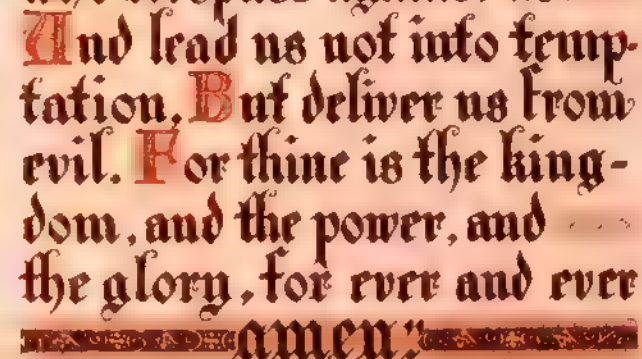 And lead us not into temp-
tation. But deliver us from
evil. For thine is the king-
dom, and the power, and
the glory, for ever and ever
amen."